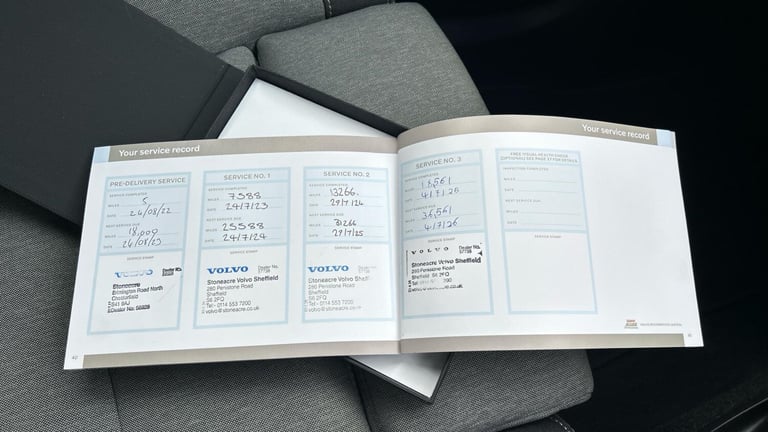 Your service record
PRE-DELIVERY SERVICE
SERVICE COMPLETED
MILES 5
DATE 26/08/22
NEXT SERVICE DUE
MILES 18,000
DATE 26/08/23
SERVICE STAMP
VOLVO
Stoneacre
Brimington Road North
Chesterfield
S41 9AJ
Dealer No:
SERVICE NO. 1
SERVICE COMPLETED
MILES 7588
DATE 24/7/23
NEXT SERVICE DUE
MILES 25588
DATE 24/7/24
SERVICE STAMP
VOLVO Dealer No.
Stoneacre Volvo Sheffield
260 Penistone Road
Sheffield
S6 2FQ
Tel:- 0114 553 7200
volvo@stoneacre.co.uk
SERVICE NO. 2
SERVICE COMPLETED
MILES 13266.
DATE 29/7/24
NEXT SERVICE DUE
MILES 31266
DATE 29/7/25
SERVICE STAMP
VOLVO Dealer No.
Stoneacre Volvo Sheffield
260 Penistone Road
Sheffield
S6 2FQ
Tel:- 0114 553 7200
volvo@stoneacre.co.uk
40
Your service record
SERVICE NO. 3
SERVICE COMPLETED
MILES 18,561
DATE 4/7/25
NEXT SERVICE DUE
MILES 36,561
DATE 4/7/26
SERVICE STAMP
VOLVO Dealer No.
Stoneacre Volvo Sheffield
260 Penistone Road
Sheffield S6 2FQ
FREE VISUAL HEALTH CHECK
(OPTIONAL) SEE PAGE 37 FOR DETAILS
INSPECTION COMPLETED
MILES
DATE
NEXT SERVICE DUE
MILES
DATE
SERVICE STAMP